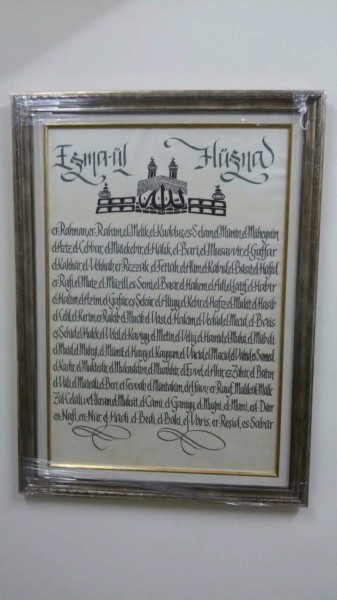 Esma-ül Hüsna
er-Rahman, er-Rahim, el-Melik, el-Kuddus, es-Selam, el-Mümin, el-Müheymin,
el-Aziz, el-Cebbar, el-Mütekebir, el-Halik, el-Bari, el-Musavvir, el-Gaffar
el-Kahhar, el-Vehhab, er-Rezzak, el-Fettah, el-Alim, el-Kabıd, el-Basıt, el-Hafıd
er-Rafi, el-Muiz, el-Müzill, es-Semi, el-Basir, el-Hakem, el-Adl, el-Latif, el-Habir
el-Halim, el-Azim, el-Gafur, eş-Şekür, el-Aliyy, el-Kebir, el-Hafız, el-Mukit, el-Hasib
el-Celil, el-Kerim, er-Rakib, el-Mucib, el-Vasi, el-Hakim, el-Vedud, el-Mecid, el-Bais
eş-Şehid, el-Hakk, el-Vekil, el-Kaviyy, el-Metin, el-Veliy, el-Hamid, el-Muhsi, el-Mübdi
el-Muid, el-Muhyi, el-Mümit, el-Hayy, el-Kayyum, el-Vacid, el-Macid, el-Vahid, es-Samed
el-Kadir, el-Muktedir, el-Mukaddim, el-Muahhir, el-Evvel, el-Ahir, ez-Zahir, el-Batın
el-Vali, el-Müteali, el-Berr, et-Tevvab, el-Müntakim, el-Afüvv, er-Rauf, Malikül-Mülk
Zül-Celali vel İkram, el-Muksit, el-Cami, el-Ganiyy, el-Mugni, el-Mani, ed-Darr
en-Nafi, en-Nur, el-Hadi, el-Bedi, el-Baki, el-Varis, er-Reşid, es-Sabûr